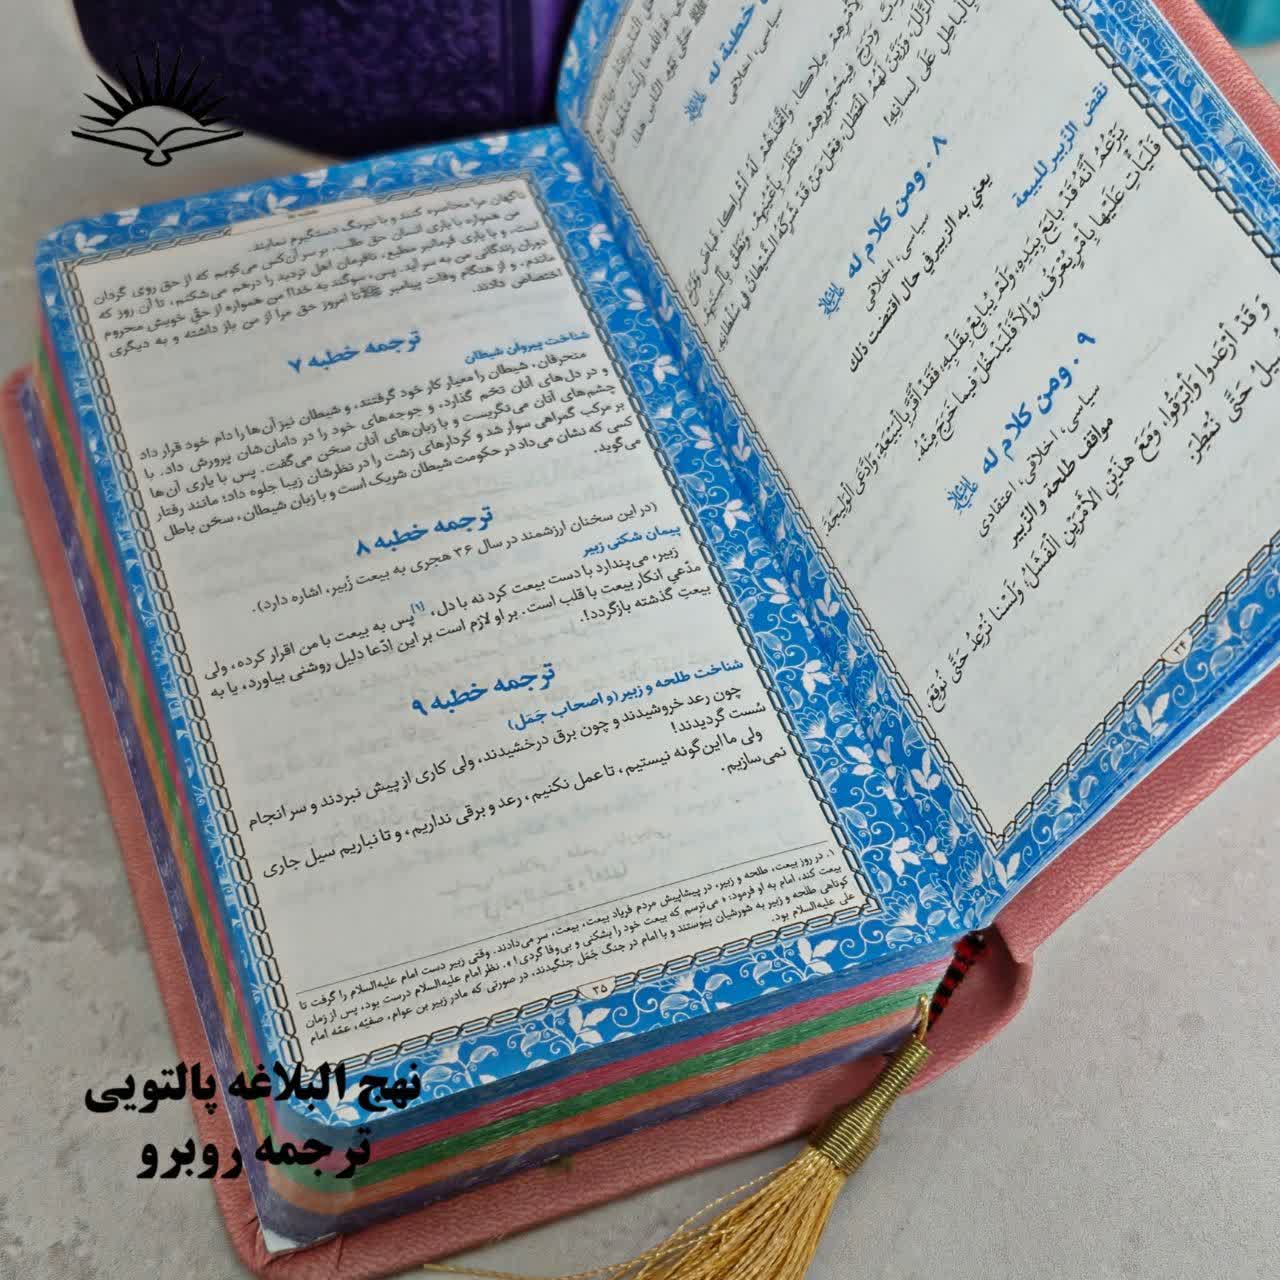 سیاسی، اخلاقی
۸ . ومن كلام له علیه السلام
سیاسی، اخلاقی
يعني به الزبير في حال اقتضت ذلك
نقض الزبير للبيعة
يَزْعُمُ أَنَّهُ قَدْ بَايَعَ بِيَدِهِ، وَلَمْ يُبَايِعْ بِقَلْبِهِ؛ فَقَدْ أَقَرَّ بِالْبَيْعَةِ، وَادَّعَى الْوَلِيجَةَ
فَلْيَأْتِ عَلَيْهَا بِأَمْرٍ يُعْرَفُ، وَإِلَّا فَلْيَدْخُلْ فِيمَا خَرَجَ مِنْهُ.
۹ . ومن كلام له علیه السلام
سیاسی، اخلاقی، اعتقادی
مواقف طلحة و الزبير
وَ قَدْ أَرْعَدُوا وَأَبْرَقُوا، وَمَعَ هٰذَيْنِ الْأَمْرَيْنِ الْفَشَلُ؛ وَلَسْنَا نُرْعِدُ حَتَّى نُوقِعَ،
حَتَّى نُمْطِرَ
۳۴
ناگهان مرا محاصره کنند و با نیرنگ دستگیرم نمایند.
من همواره با یاری انسان حق طلب، بر سر آن کس می‌کوبم که از حق روی گردان
است، و با یاری فرمانبر مطیع، نافرمان اهل تردید را درهم می‌شکنم، تا آن روز که
دوران زندگانی من به سر آید. پس، سوگند به خدا! من همواره از حقّ خویش محروم
ماندم، و از هنگام وفات پیامبر ﷺ تا امروز حق مرا از من باز داشته و به دیگری
اختصاص دادند.
ترجمه خطبه ۷
شناخت پیروان شیطان
منحرفان، شیطان را معیار کار خود گرفتند، و شیطان نیز آن‌ها را دام خود قرار داد
و در دل‌های آنان تخم گذارد، و جوجه‌های خود را در دامانشان پرورش داد. با
چشم‌های آنان می‌نگریست و با زبان‌های آنان سخن می‌گفت. پس با یاری آن‌ها
بر مرکب گمراهی سوار شد و کردارهای زشت را در نظرشان زیبا جلوه داد؛ مانند رفتار
کسی که نشان می‌داد در حکومت شیطان شریک است و با زبان شیطان، سخن باطل
می‌گوید.
ترجمه خطبه ۸
(در این سخنان ارزشمند در سال ۳۶ هجری به بیعت زُبیر، اشاره دارد).
پیمان شکنی زبیر
زبیر، می‌پندارد با دست بیعت کرد نه با دل، [۱] پس به بیعت با من اقرار کرده، ولی
مدّعی انکار بیعت با قلب است. بر او لازم است بر این ادّعا دلیل روشنی بیاورد، یا به
بیعت گذشته بازگردد!.
ترجمه خطبه ۹
شناخت طلحه و زبیر (و اصحاب جَمَل)
چون رعد خروشیدند و چون برق درخشیدند، ولی کاری از پیش نبردند و سرانجام
سُست گردیدند!
ولی ما این گونه نیستیم، تا عمل نکنیم، رعد و برقی نداریم، و تا نباریم سیل جاری
نمی‌سازیم.
۱. در روز بیعت، طلحه و زبیر، در پیشاپیش مردم فریاد بیعت، بیعت، سر می‌دادند. وقتی زبیر دست امام علیه‌السلام را گرفت تا
بیعت کند، امام به او فرمود: « می‌ترسم که بیعت خود را بشکنی و بی‌وفا گردی! ». نظر امام علیه‌السلام درست بود، پس از زمان
کوتاهی طلحه و زبیر به شورشیان پیوستند و با امام در جنگ جَمَل جنگیدند، در صورتی که مادر زبیر بن عوام، صفیّه، عمّه امام
علی علیه‌السلام بود.
۳۵
نهج البلاغه پالتویی
ترجمه روبرو